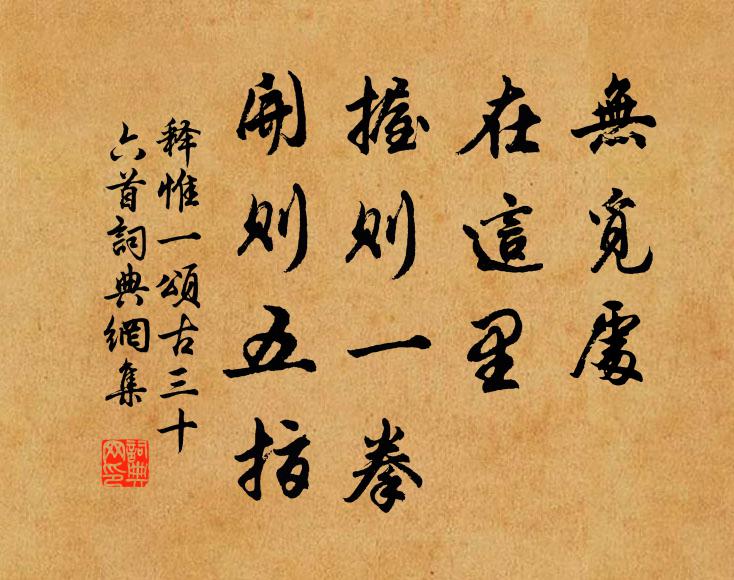 無覓處
在這里
握则一拳
開则五指
释惟一頌古三十
六首詞典網集
詞典網印